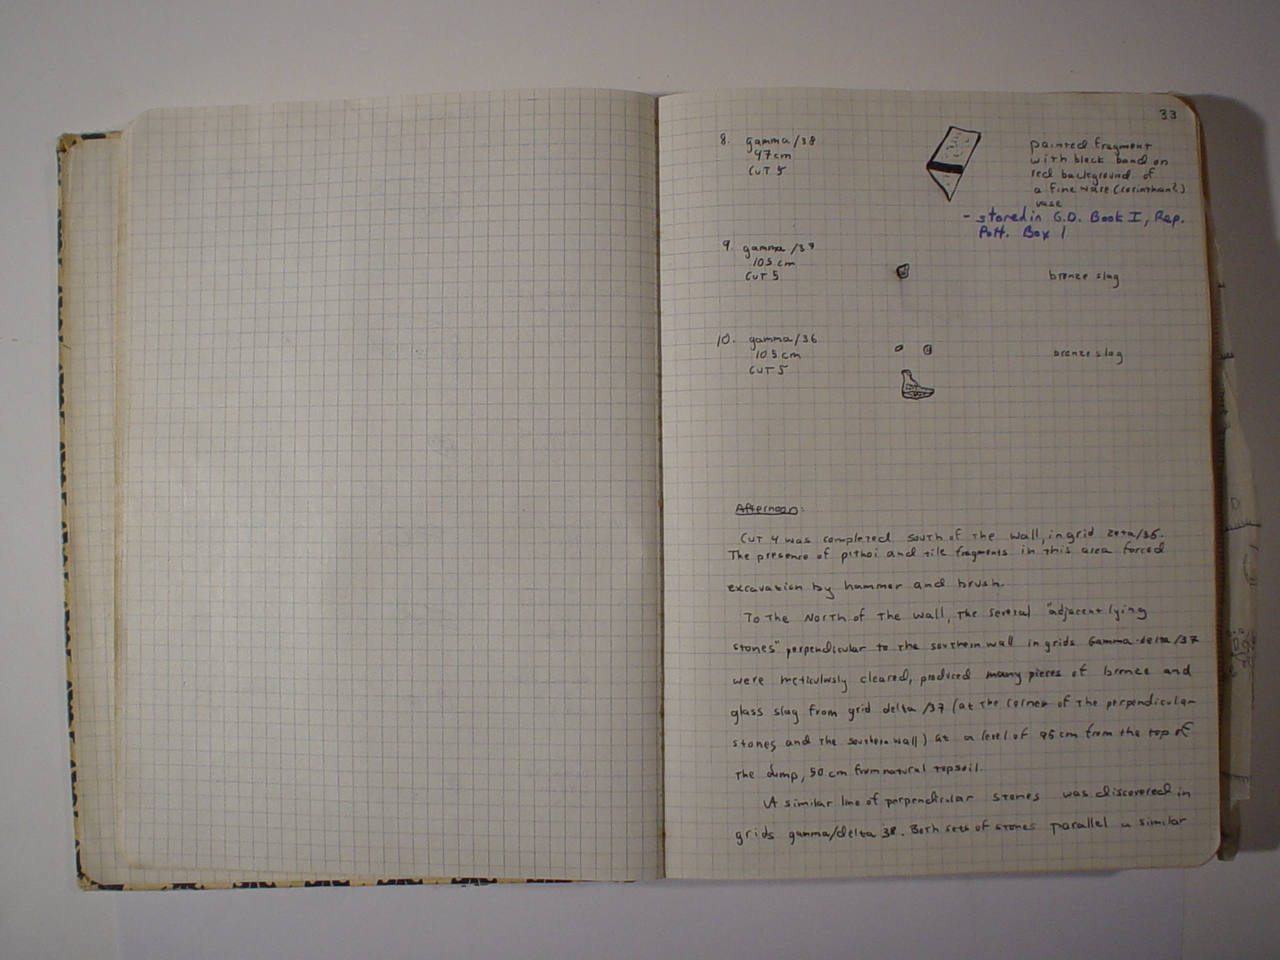 33
8. gamma/38
47cm
CUT 5
painted fragment
with black band on
red background of
a fine ware (corinthian?)
vase
- stored in G.D. Book I, Rep.
Pott. Box 1
9. gamma/37
105 cm
CUT 5
bronze slag
10. gamma/36
105 cm
CUT 5
bronze slag
Afternoon:
CUT 4 was completed south of the wall, in grid zeta/35.
The presence of pithoi and tile fragments in this area forced
excavation by hammer and brush.
To the North of the wall, the several "adjacent lying
stones" perpendicular to the southern wall in grids Gamma-delta/37
were meticulously cleared, produced many pieces of bronze and
glass slag from grid delta/37 (at the corner of the perpendicular
stones and the southern wall) at a level of 95 cm from the top of
the dump, 50 cm from natural topsoil.
A similar line of perpendicular stones was discovered in
grids gamma/delta 38. Both sets of stones parallel a similar